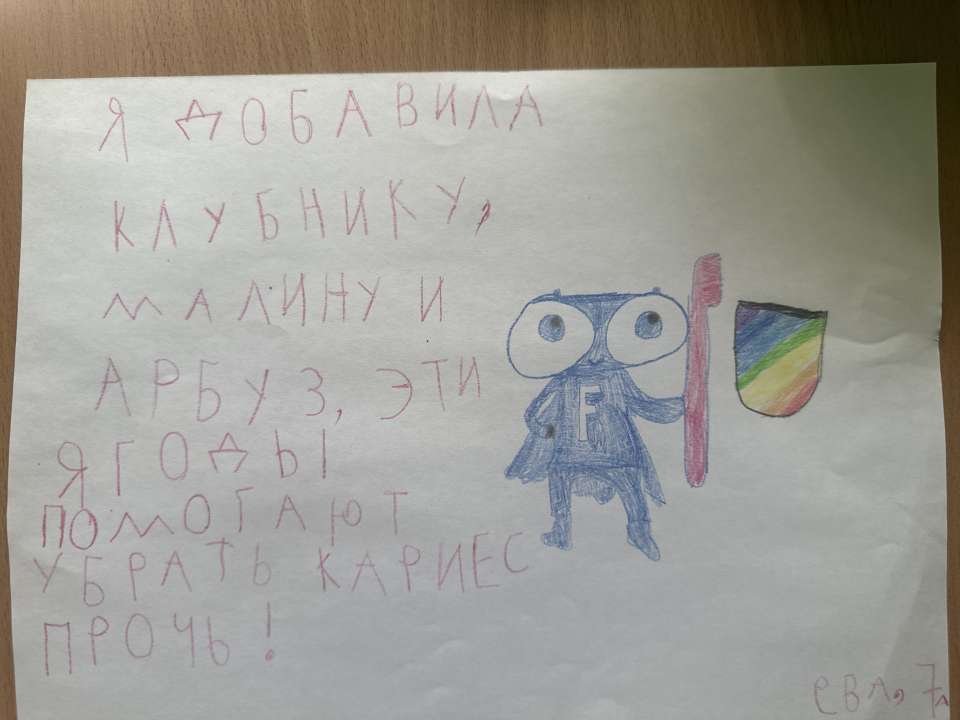 Я ДОБАВИЛА
КЛУБНИКУ,
МАЛИНУ И
АРБУЗ, ЭТИ
ЯГОДЫ
ПОМОГАЮТ
УБРАТЬ КАРИЕС
ПРОЧЬ!
F
ЕВА, 7л